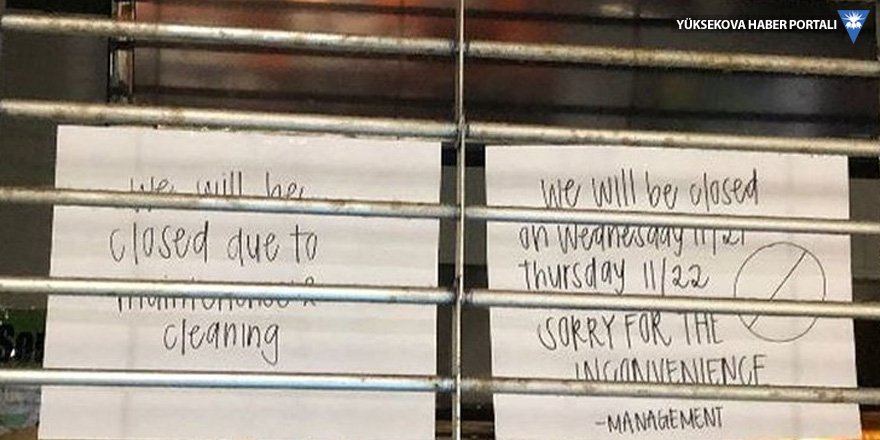 YÜKSEKOVA HABER PORTALI
We will be
closed due to
maintenance &
cleaning
We will be closed
on Wednesday 11/21
Thursday 11/22
SORRY FOR THE
INCONVENIENCE
-MANAGEMENT